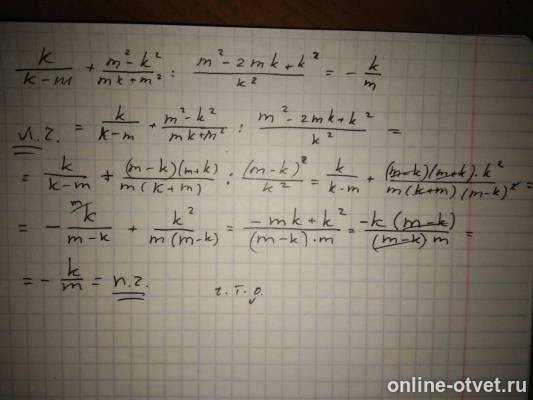 k/(k-m) + (m²-k²)/(mk+m²) : (m²-2mk+k²)/k² = -k/m
л.ч. = k/(k-m) + (m²-k²)/(mk+m²) : (m²-2mk+k²)/k² =
= k/(k-m) + (m-k)(m+k)/m(k+m) : (m-k)²/k² = k/(k-m) + (m-k)(m+k)·k²/m(k+m)(m-k)² =
= - ᵐ/k/(m-k) + k²/m(m-k) = (-mk+k²)/(m-k)·m = -k(m-k)/(m-k)m =
= -k/m = п.ч. ч.т.д.
online-otvet.ru